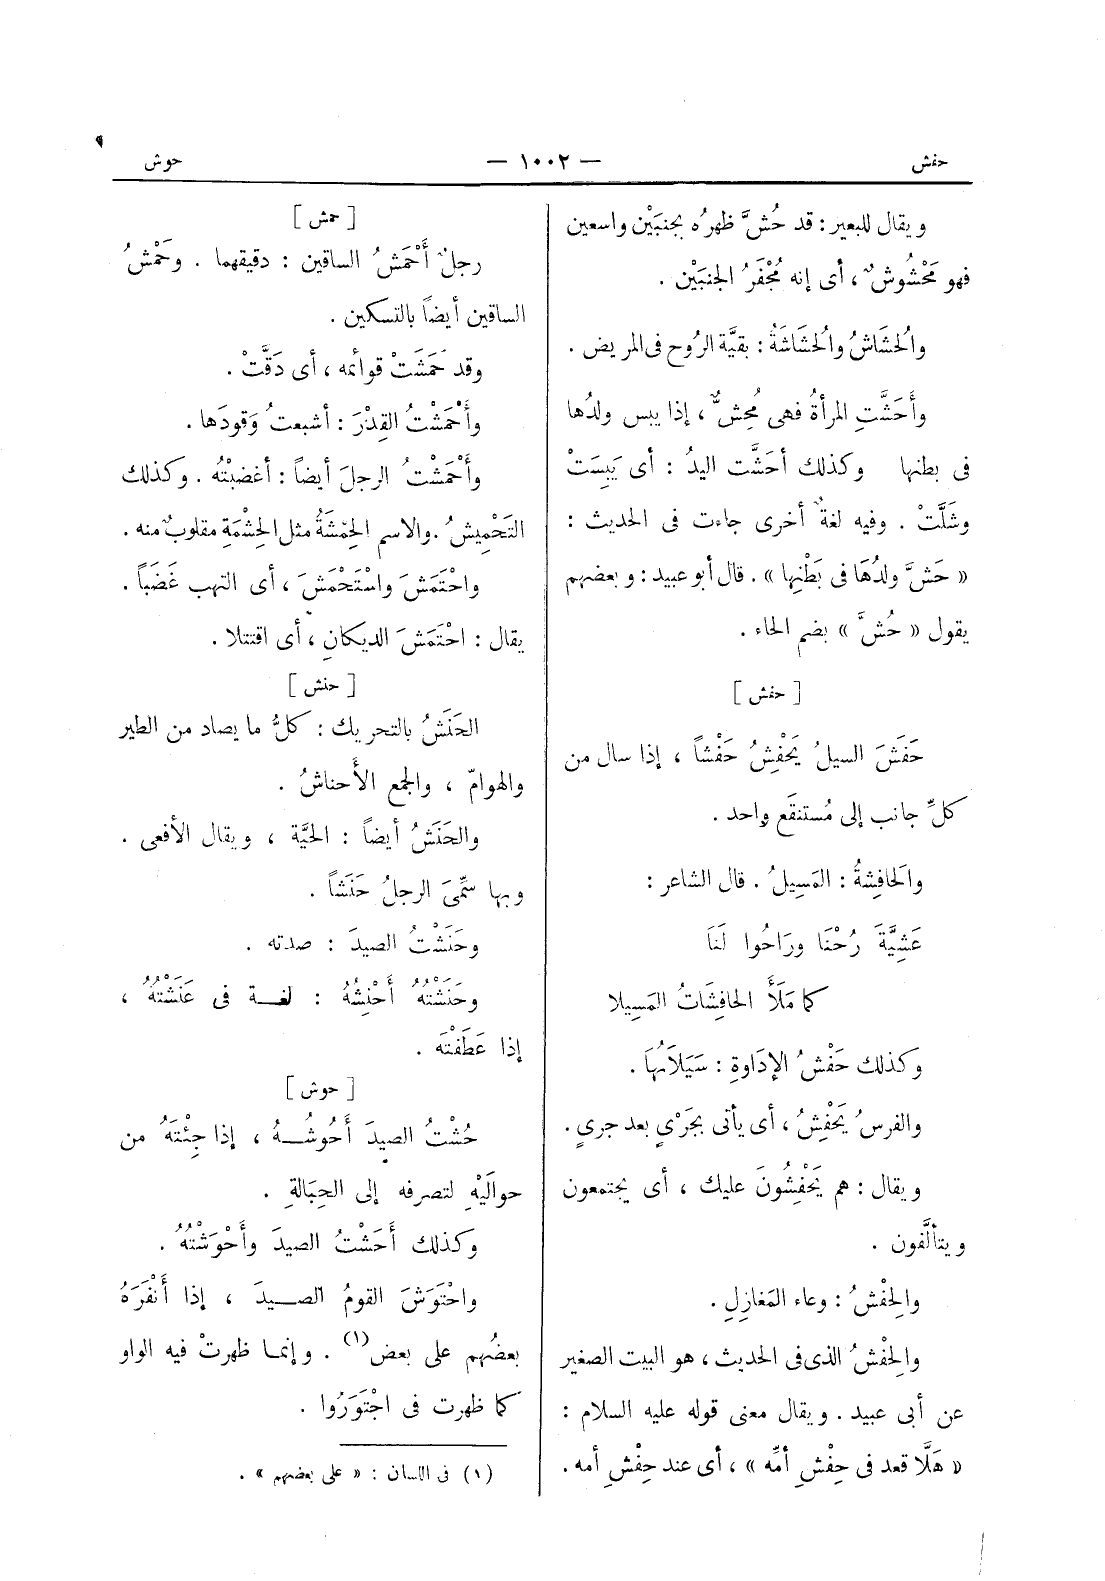 حفش — ١٠٠٢ — حوش
ويقال للبعير : قد حُشَّ ظهرُه بجنبَيْن واسعين
فهو مَحْشُوشٌ ، أى إنه مُجْفَرُ الجنبَيْن .
والُحشَاشُ والُحشَاشَةُ : بقيَّة الرُوح فى المريض .
وأَحَشَّتِ المرأةُ فهى مُحِشٌّ ، إذا يبس ولدُها
فى بطنها وكذلك أحَشَّت اليدُ : أى يَبِسَتْ
وشلَّتْ . وفيه لغةٌ أخرى جاءت فى الحديث :
« حَشَّ ولدُهَا فى بَطْنِها » . قال أبو عبيد : وبعضهم
يقول « حُشَّ » بضم الحاء .
[ حفش ]
حَفَشَ السيلُ يَحْفِشُ حَفْشاً ، إذا سال من
كلِّ جانب إلى مُستنقَع واحد .
والَحافِشةُ : المَسِيلُ . قال الشاعر :
عَشِيَّةَ رُحْنَا ورَاحُوا لَنَا
كما مَلَأَ الحافِشَاتُ المَسِيلا
وكذلك حَفْشُ الإدَاوةِ : سَيَلَانُهَا .
والفرسُ يَحْفِشُ ، أى يأتى بجَرْيٍ بعد جريٍ .
ويقال : هم يَحْفِشُونَ عليك ، أى يجتمعون
ويتألَّفون .
والِحفْشُ : وعاء المَغازِلِ .
والِحفْشُ الذى فى الحديث ، هو البيت الصغير
عن أبى عبيد . ويقال معنى قوله عليه السلام :
« هَلَّا قعد فى حِفْشِ أمِّه » ، أى عند حِفْشِ أمه .
[ حمش ]
رجلٌ أَحْمَشُ الساقين : دقيقهما . وحَمْشُ
الساقين أيضاً بالتسكين .
وقد حَمَشَتْ قوائمه ، أى دَقَّتْ .
وأَحْمَشْتُ القِدْرَ : أشبعتُ وَقودَها .
وأَحْمَشْتُ الرجلَ أيضاً : أغضبْتُه . وكذلك
التَحْمِيشُ . والاسم الِحمْشَةُ مثل الِحشْمَةِ مقلوبٌ منه .
واحْتَمَشَ واسْتَحْمَشَ ، أى التهب غَضَباً .
يقال : احْتَمَشَ الديكانِ ، أى اقتتلا .
[ حنش ]
الحَنَشُ بالتحريك : كلُّ ما يصاد من الطير
والهوامّ ، والجمع الأَحناشُ .
والحَنَشُ أيضاً : الحيَّة ، ويقال الأفعى .
وبها سمِّىَ الرجلُ حَنَشاً .
وحَنَشْتُ الصيدَ : صدته .
وحَنَشْتُهُ أَحْنِشُهُ : لغة فى عَنَشْتُهُ ،
إذا عَطَفْتَه .
[ حوش ]
حُشْتُ الصيدَ أَحُوشُهُ ، إذا جِئْتَهُ من
حوالَيْهِ لتصرفه إلى الحِبَالةِ .
وكذلك أَحَشْتُ الصيدَ وأَحْوَشْتُهُ .
واحْتَوَشَ القومُ الصيدَ ، إذا أَنْفَرَهُ
بعضُهم على بعض (١) . وإنما ظهرتْ فيه الواو
كما ظهرت فى اجْتَوَرُوا .
(١) فى اللسان : « على بعضهم » .